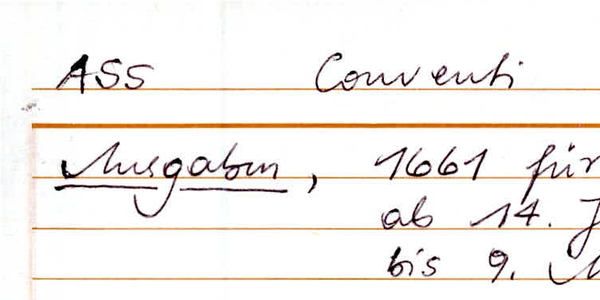 ASS Conventi
Ausgaben, 1661 für
ab 14. J
bis 9. M